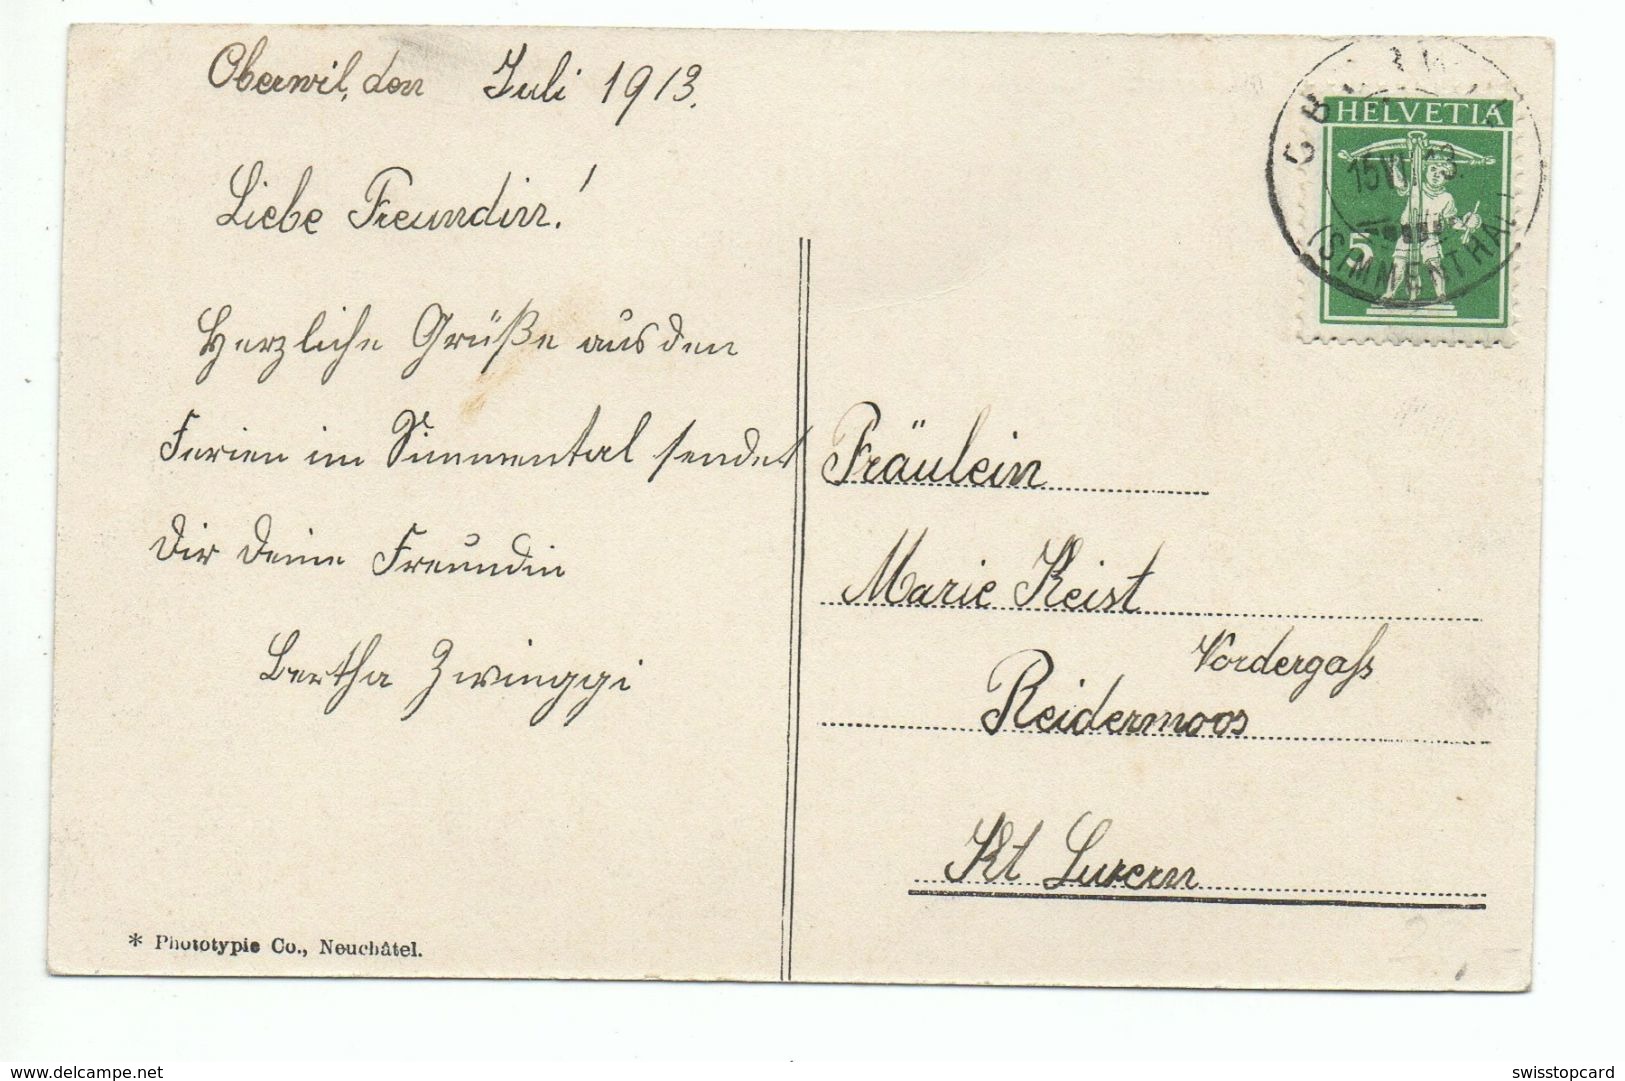 Oberwil, den Juli 1913.
Liebe Freundin!
Herzliche Grüße aus den
Ferien im Simmental sendet
Dir Deine Freundin
Bertha Zwinggi
* Phototypie Co., Neuchâtel.
HELVETIA
5
(SIMMENTHAL)
Fräulein
Marie Keist
Vordergass
Reidermoos
Kt Luzern
delcampe.net
swisstopcard